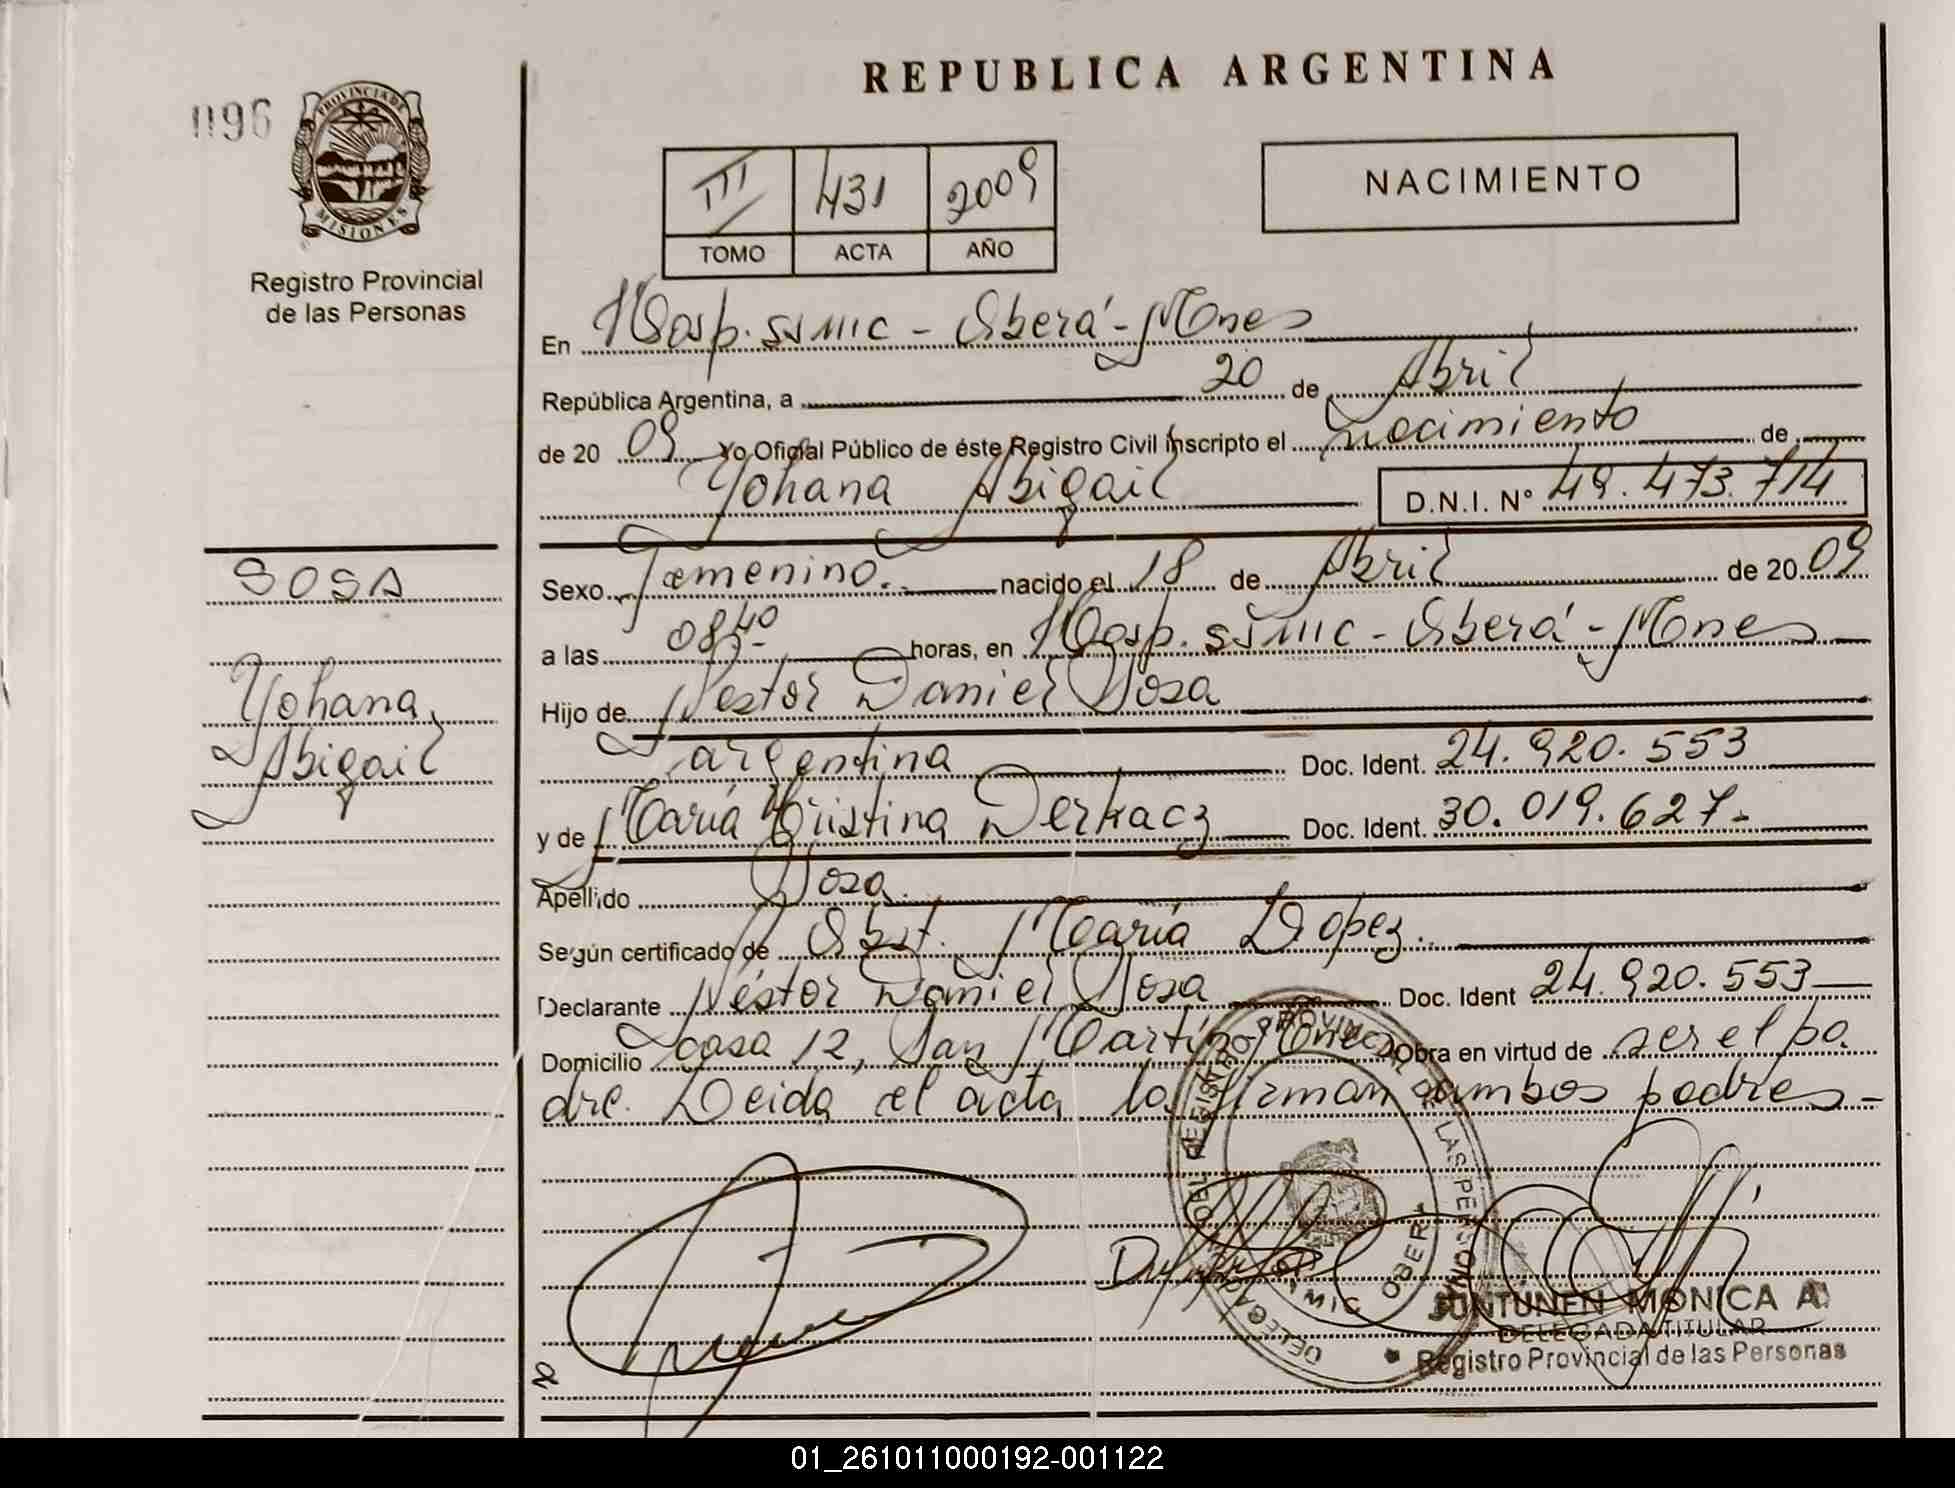 REPUBLICA ARGENTINA
1196
PROVINCIA DE
MISIONES
Registro Provincial
de las Personas
III 431 2009
TOMO ACTA AÑO
NACIMIENTO
En Hosp. SSMIC - Oberá - Mnes
República Argentina, a 20 de Abril
de 20 09 Yo Oficial Público de éste Registro Civil inscripto el nacimiento de
Yohana Abigail D.N.I. Nº 49.473.714
SOSA
Yohana
Abigail
Sexo Femenino. nacido el 18 de Abril de 20 09
a las 08,40 horas, en Hosp. SSMIC - Oberá - Mnes
Hijo de Nestor Daniel Sosa
argentina Doc. Ident. 24.920.553
y de María Cristina Derkacz Doc. Ident. 30.019.627-
Apellido Sosa.
Según certificado de Obst. María Lopez.
Declarante Néstor Daniel Sosa Doc. Ident 24.920.553
Domicilio casa 12, San Martín Mnes Obra en virtud de ser el pa
dre. Leida el acta la firman ambos padres -
REGISTRO PROVINCIAL DE LAS PERSONAS
OBERA
JUNTUNEN MONICA A.
DELEGADA TITULAR
Registro Provincial de las Personas
01_261011000192-001122